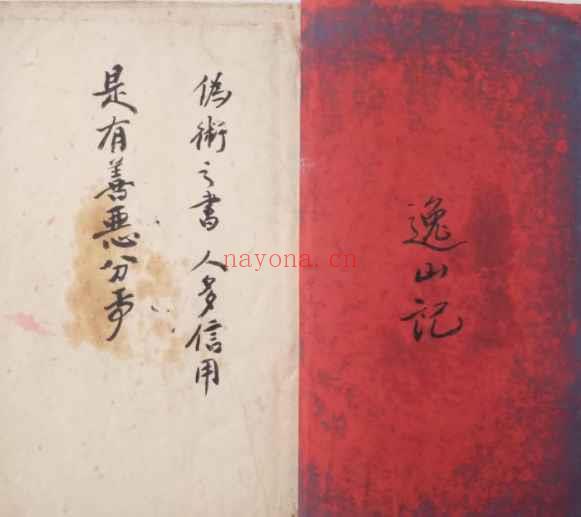 逸山記
偽術之書 人多信用
是有善悪分
nayona.cn